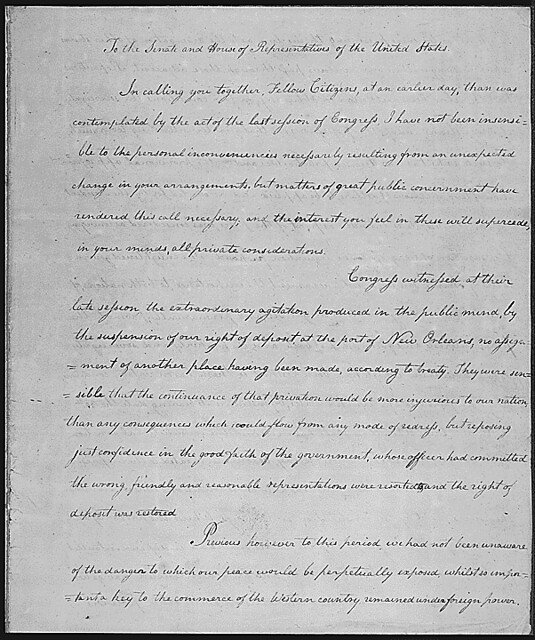 To the Senate and House of Representatives of the United States.
In calling you together, Fellow Citizens, at an earlier day, than was
contemplated by the act of the last session of Congress, I have not been insensi-
ble to the personal inconveniences necessarily resulting from an unexpected
change in your arrangements. but matters of great public concernment have
rendered this call necessary, and the interest you feel in these will supercede,
in your minds, all private considerations.
Congress witnessed, at their
late session, the extraordinary agitation produced in the public mind, by
the suspension of our right of deposit at the port of New Orleans, no assign-
=ment of another place having been made, according to treaty. They were sen-
=sible that the continuance of that privation would be more injurious to our nation
than any consequences which would flow from any mode of redress, but reposing
just confidence in the good faith of the government, whose officer had committed
the wrong, friendly and reasonable representations were resorted to and the right of
deposit was restored
Previous however to this period we had not been unaware
of the danger to which our peace would be perpetually exposed, whilst so impor-
=tant a key to the commerce of the Western country remained under foreign power.